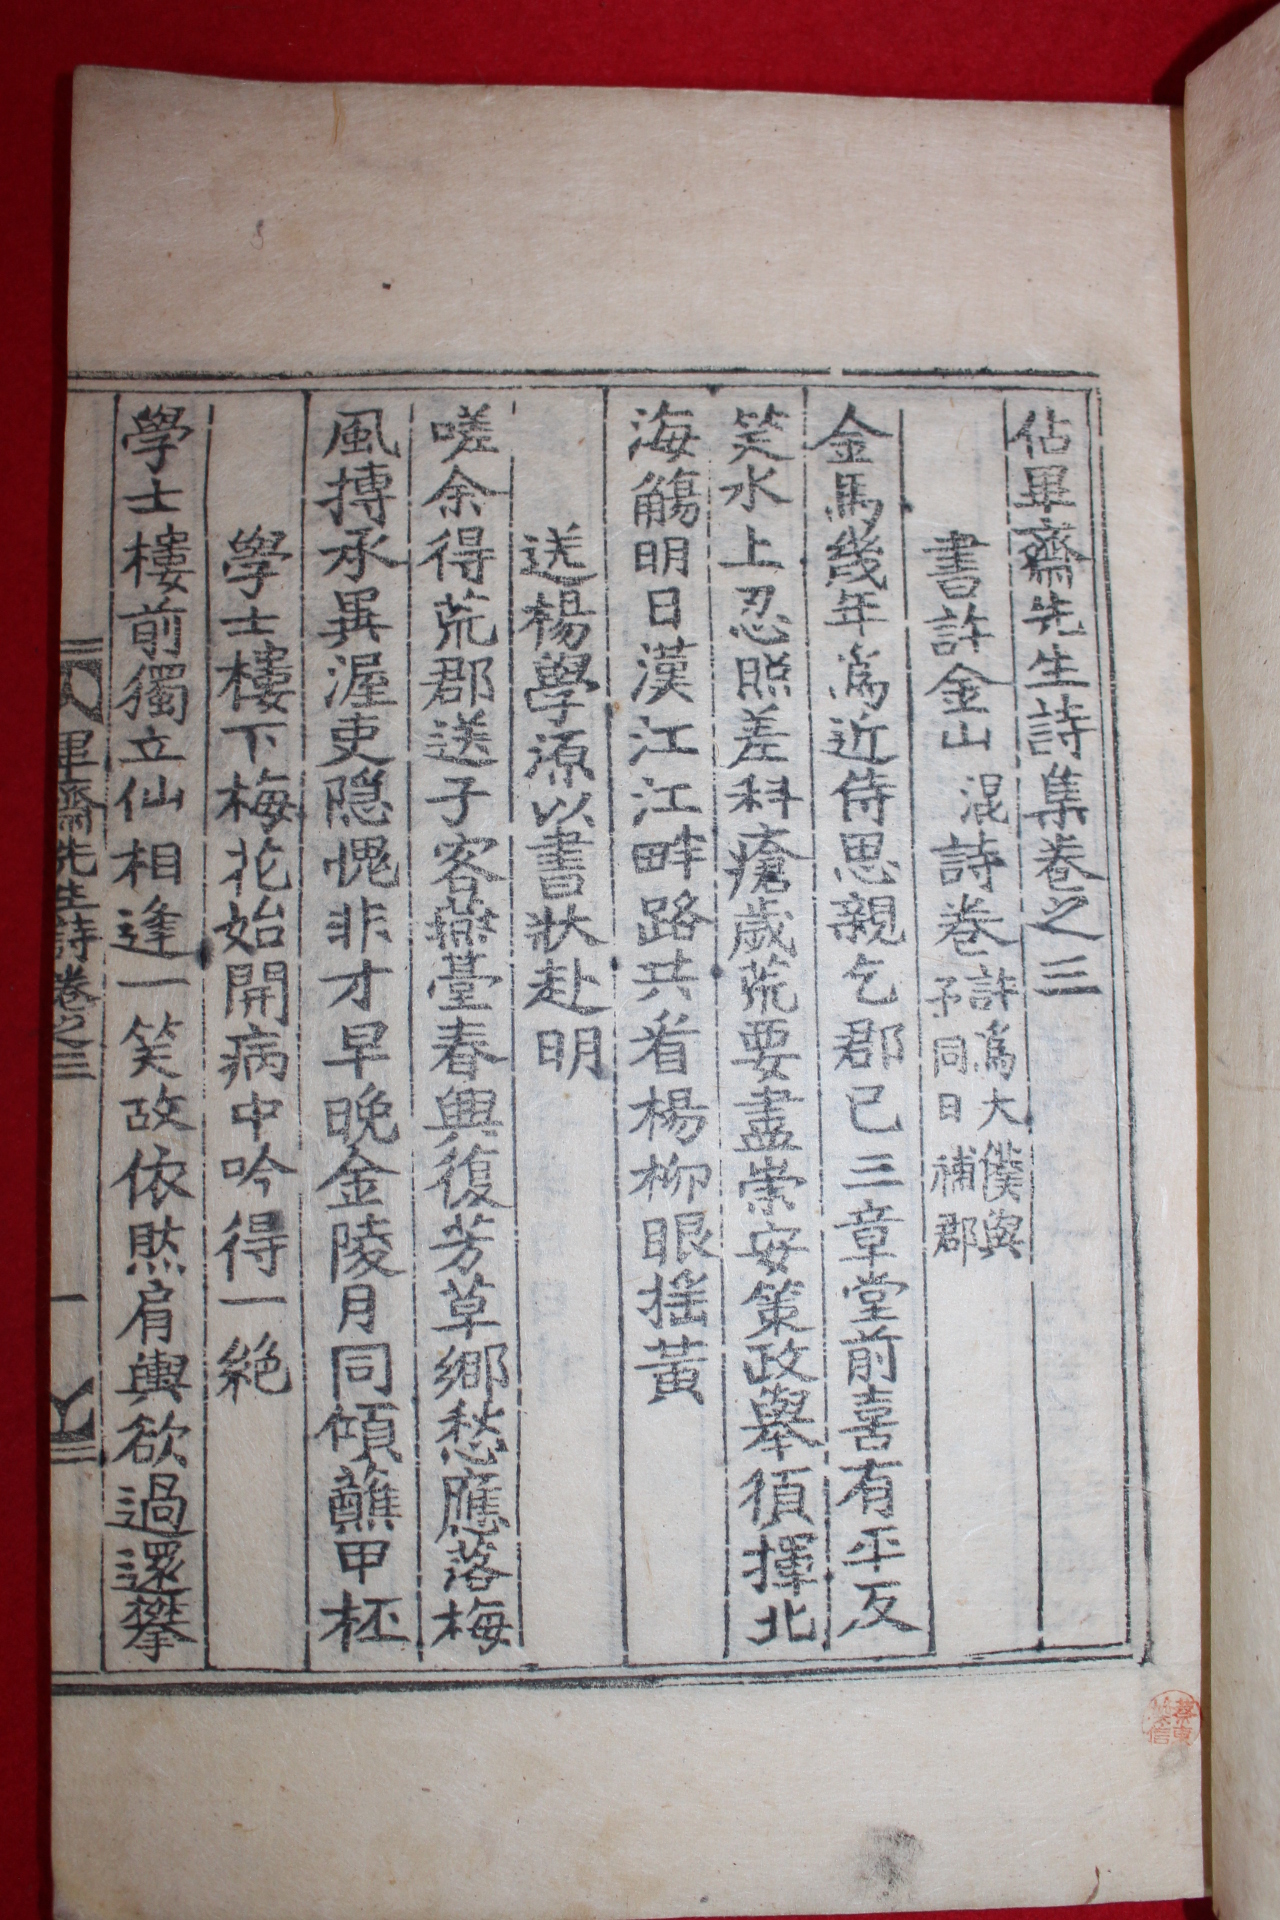 佔畢齋先生詩集卷之三
書許金山混詩卷許爲大僕與予同日補郡
金馬幾年爲近侍思親乞郡已三章堂前喜有平反
笑水上忍照差科瘡歲荒要盡崇安策政舉須揮北
海觴明日漢江江畔路共看楊柳眼搖黃
送楊學源以書狀赴明
嗟余得荒郡送子客燕臺春興復芳草鄉愁應落梅
風摶承異渥吏隱愧非才早晚金陵月同傾蘸甲杯
學士樓下梅花始開病中吟得一絶
學士樓前獨立仙相逢一笑故依然肩輿欲過還攀
畢齋先生詩卷之三
一